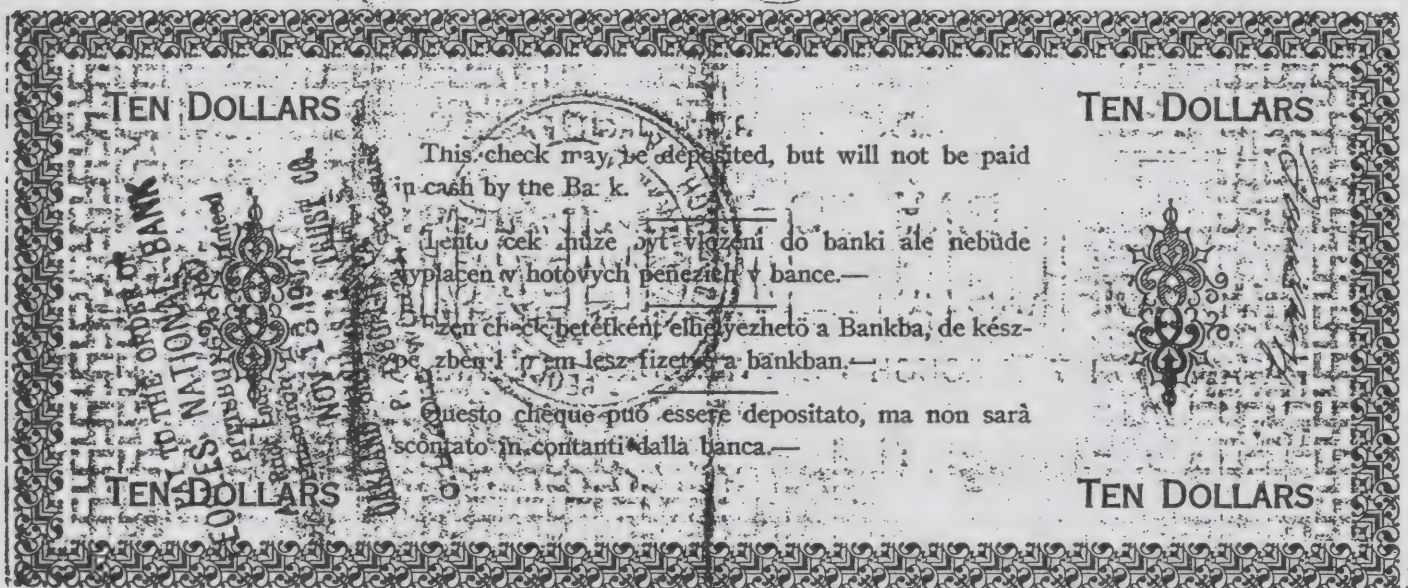 TEN DOLLARS
TEN DOLLARS
This check may be deposited, but will not be paid
in cash by the Ba k.
Tento cek muze byt vlozeni do banki ale nebude
vyplacen v hotovych penezich v bance.—
Ezen check betétként elhelyezhető a Bankba, de kész-
pé zben nem lesz fizetve a bankban.—
Questo chèque può essere depositato, ma non sarà
scontato in contanti dalla banca.—
TO THE ORDER OF
NATIONAL BANK
PITTSBURGH
NOV 15 19
TRUST CO.
OAKLAND
TEN DOLLARS
TEN DOLLARS